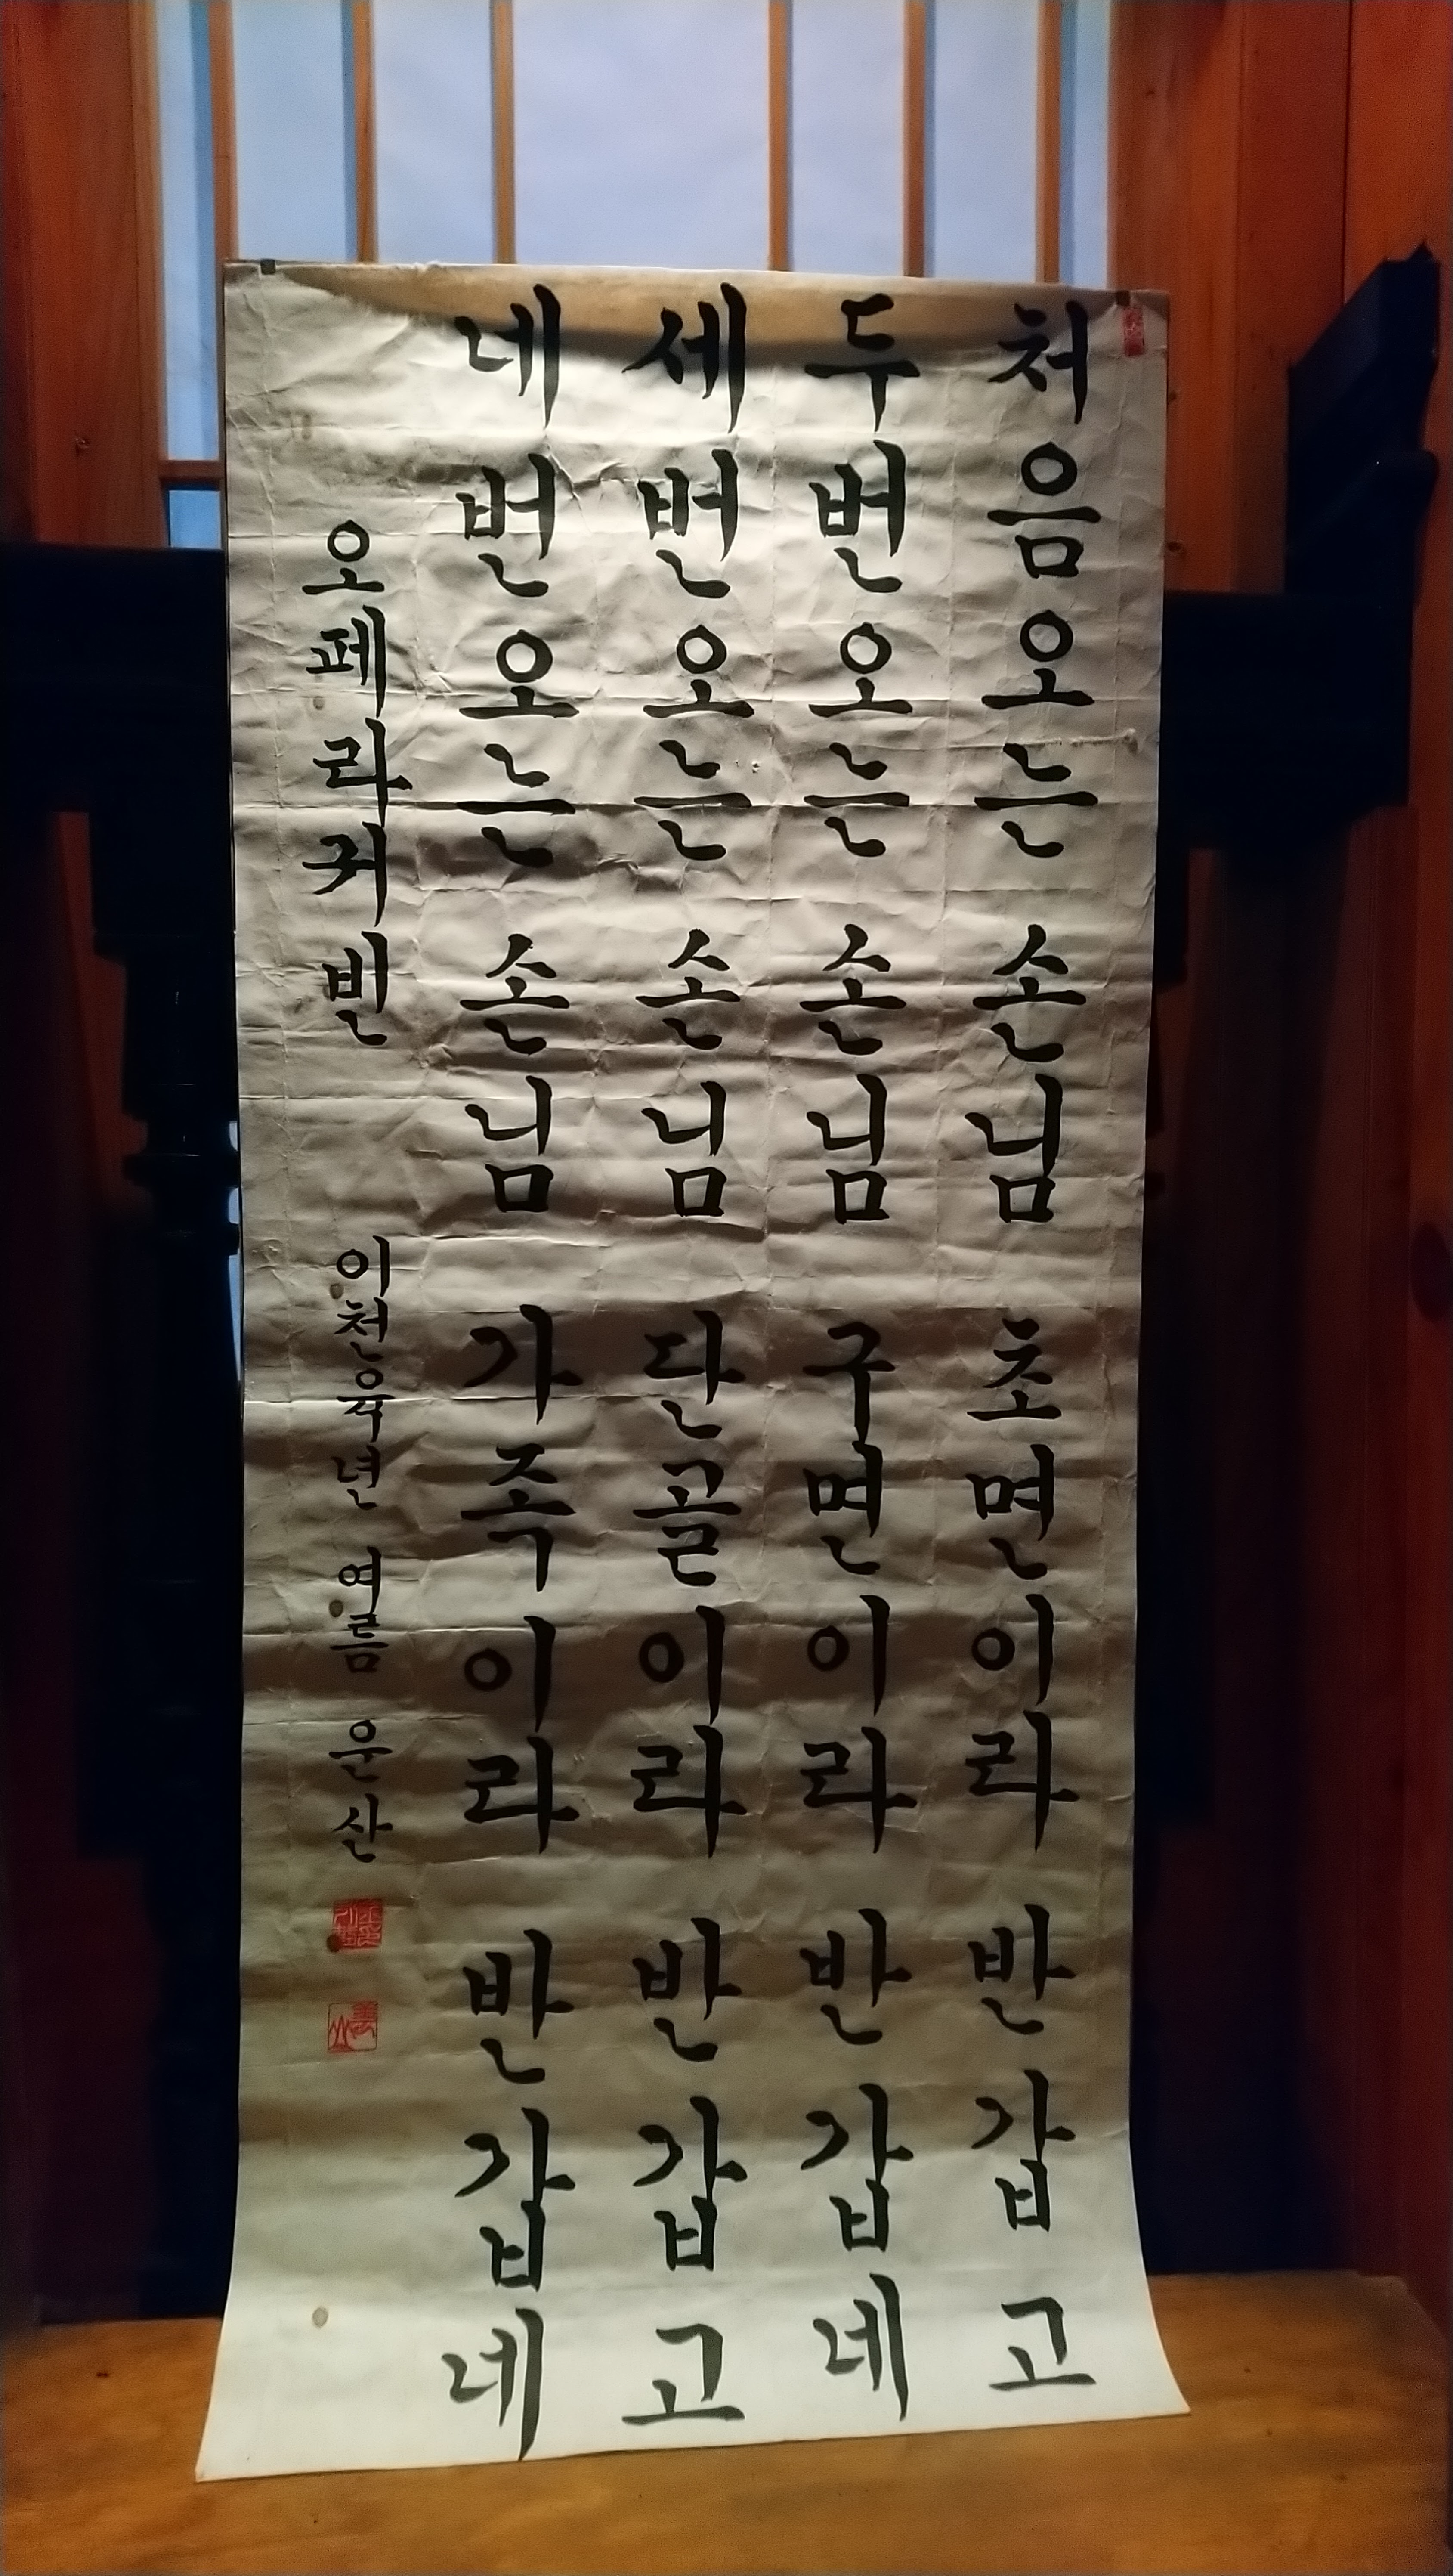 처음오는 손님 초면이라 반갑고
두번오는 손님 구면이라 반갑네
세번오는 손님 단골이라 반갑고
네번오는 손님 가족이라 반갑네
오페라귀빈 이천육년 여름 운산